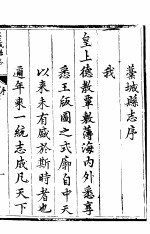 藁城縣志序
我
皇上德教覃敷薄海内外悉享
悉王版圖之式廓自中天
以来未有盛於斯時者也
邇年来一統志成凡天下